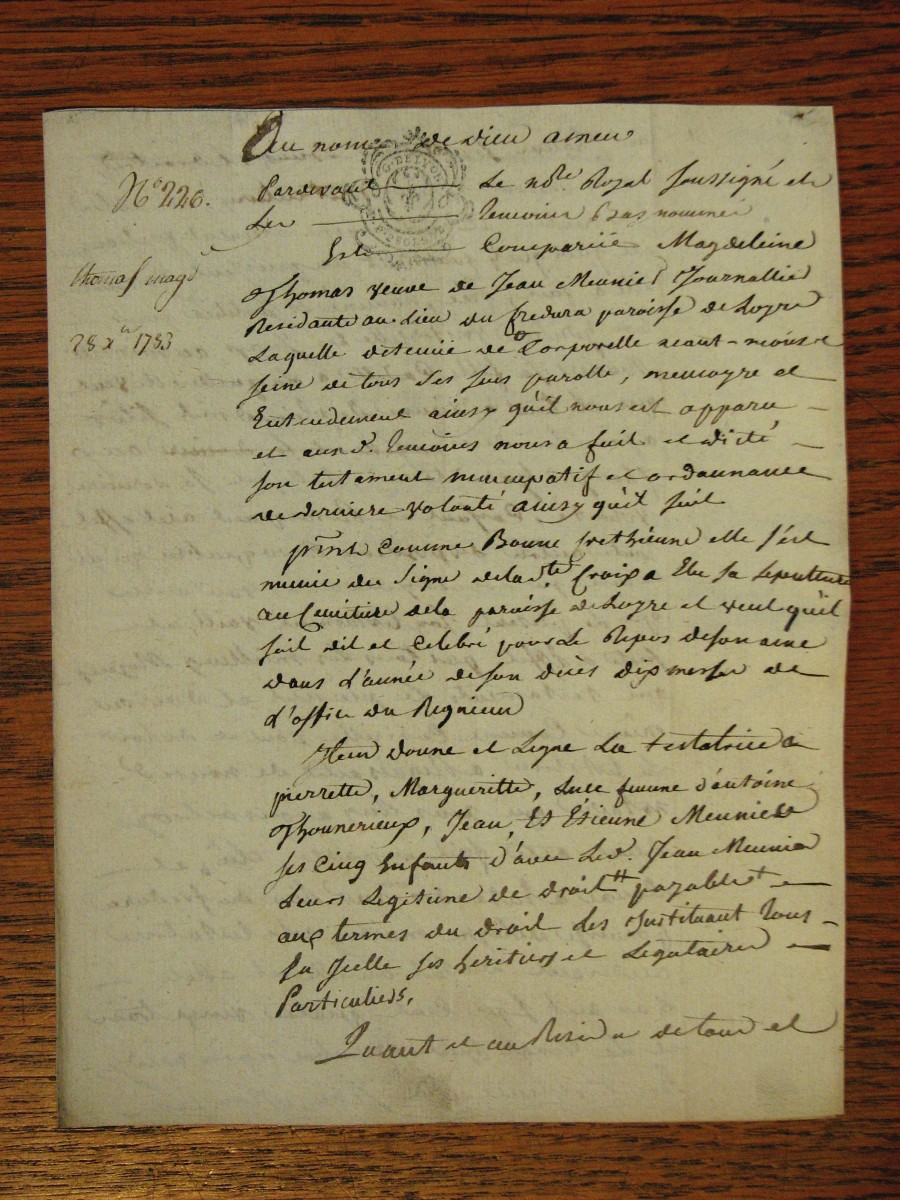 Au nom de Dieu amen
N° 226.
Pardevant Le no.re Royal soussigné et
Les temoins bas nommés
Est Compariie Magdeleine
thomas magd
Thomas veuve de Jean Meunier Journallier
Residante au Lieu du fredura paroisse de Loyre
28 xbre 1783
Laquelle detenüe de Corporelle neant-moins
seine de tous ses sens parolle, memoyre et
Entendement ainsy qu'il nous est apparu
et aux d. temoins nous a fait et dicté
son testament nuncupatif et ordonnance
de derniere volonté ainsy qu'il suit
premt Comme Bonne Chrethienne elle s'est
munie du Signe de la Ste Croix a Elu sa Sepulture
au Cimitiere de la paroisse de Loyre et veut qu'il
soit dit et Celebré pour Le Repos de son ame
dans l'année de son décès dix messes de
l'office du
Item donne et Legue La testatrice a
pierrette, Margueritte, femme d'antoine
Thounerieux, Jean, Et Etienne Meunier
ses Cinq Enfants d'avec Led. Jean Meunier
Leurs Legitime de droit payable
aux termes du droit les instituant tous
sa Icelle ses heritiers et Legataires
Particuliers,
Quant et au Residu de tous et